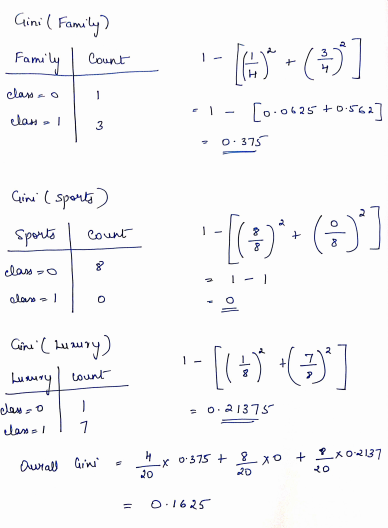 Gini (Family)
Family | Count
class = 0 | 1
class = 1 | 3
1 - [(1/4)² + (3/4)²]
= 1 - [0.0625 + 0.562]
= 0.375
Gini (Sports)
Sports | Count
class = 0 | 8
class = 1 | 0
1 - [(8/8)² + (0/8)²]
= 1 - 1
= 0
Gini (Luxury)
Luxury | count
class = 0 | 1
class = 1 | 7
1 - [(1/8)² + (7/8)²]
= 0.21375
Overall Gini = 4/20 x 0.375 + 8/20 x 0 + 8/20 x 0.2137
= 0.1625